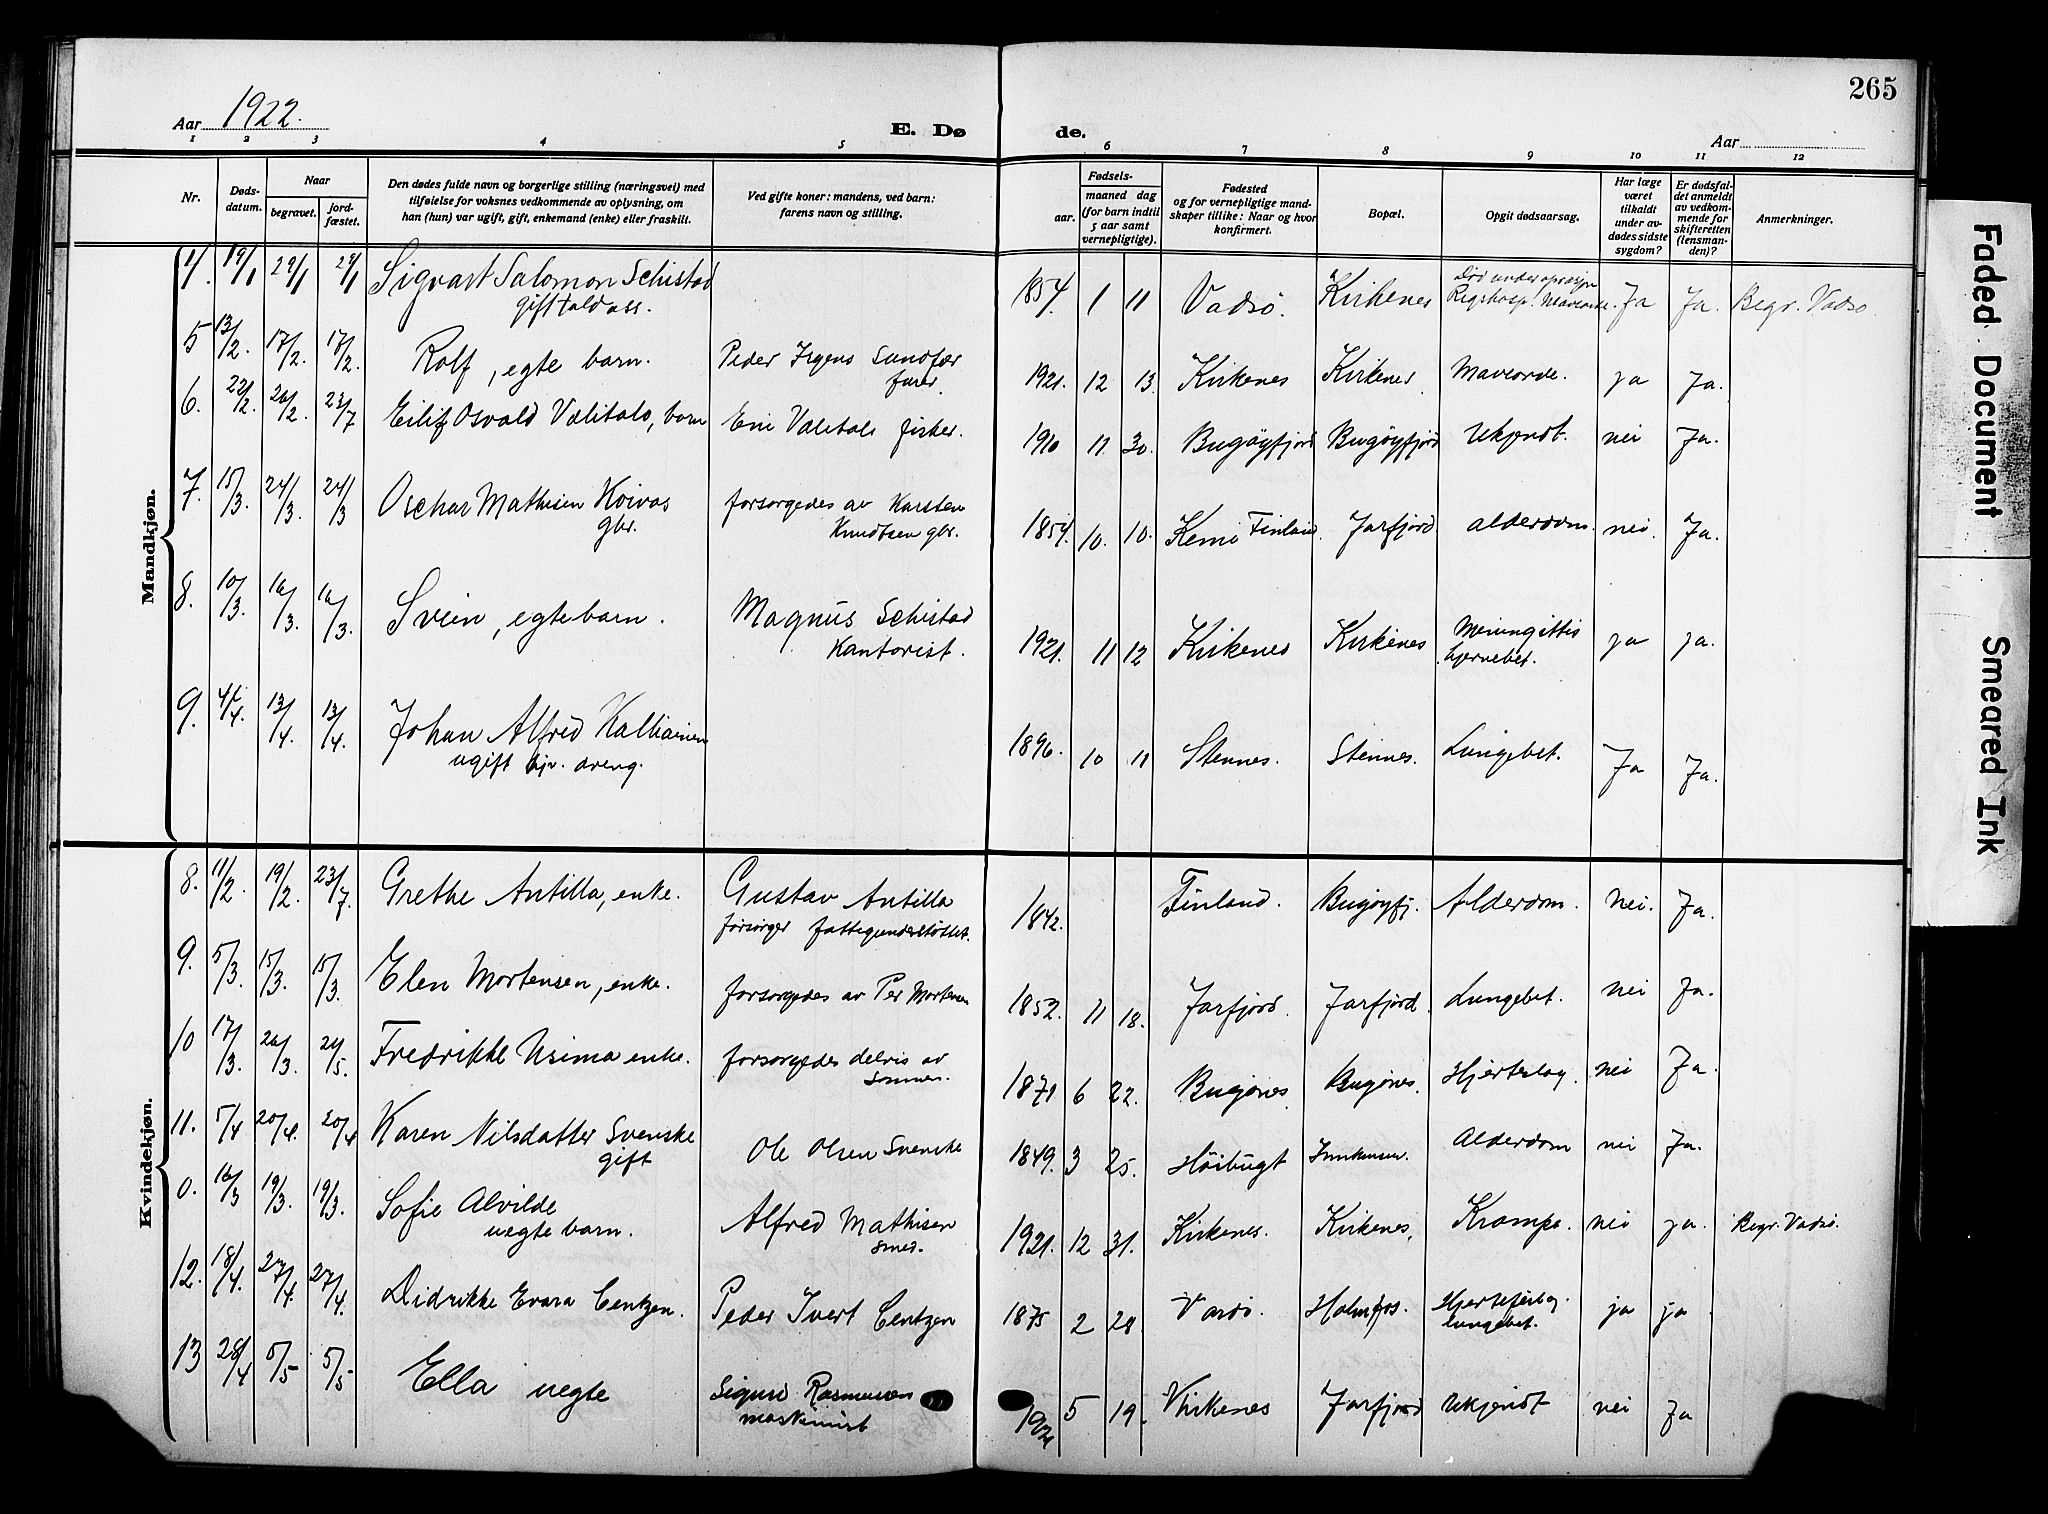 265
Aar 1922.
E. Dø de.
Aar
1 2 3 4 5 6 7 8 9 10 11 12
Nr. Døds-datum. Naar begravet. jord-fæstet. Den dødes fulde navn og borgerlige stilling (næringsvei) med tilføielse for voksnes vedkommende av oplysning, om han (hun) var ugift, gift, enkemand (enke) eller fraskilt. Ved gifte koner: mandens, ved barn: farens navn og stilling. Fødsels- aar. maaned dag (for barn indtil 5 aar samt vernepligtige). Fødested og for vernepligtige mandskaper tillike: Naar og hvor konfirmert. Bopæl. Opgit dødsaarsag. Har læge været tilkaldt under avdødes sidste sygdom? Er dødsfaldet anmeldt av vedkommende for skifteretten (lensmanden)? Anmerkninger.
Mandkjøn.
4. 19/1 29/1 29/1 Sigvart Salomon Schistad 1854. 1 11 Vadsø. Kirkenes Død under Ja Ja. Begr. Vadsø.
gift
5 13/2. 17/2. 17/2. Rolf, egte barn. Peder 1921. 12 13. Kirkenes Kirkenes ja Ja.
6. 22/2. 26/2. 23/7 Eilif Osvald Valitalo, barn Valitalo fisker. 1910 11. 30. Bugøyfjord Bugøyfjord Ukjendt. nei Ja.
7. 15/3. 24/3. 24/3 Oschar Mathisen Koivas forsorgedes av Karsten 1854. 10. 10. Kemi Finland. Jarfjord Alderdom. nei. Ja.
gbr. Knudtsen gbr.
8. 10/3. 16/3. 16/3. Svein, egte barn. Magnus Schistad 1921. 11 12 Kirkenes Kirkenes Meningittis ja ja.
Kontorist. hjernebet.
9. 4/4. 13/4. 13/4. Johan Alfred Kalliainen 1896. 10 11 Stennes. Stennes. Lungebet. Ja Ja.
ugift dreng.
Kvindekjøn.
8. 11/2. 19/2. 23/7. Grethe Antilla, enke. Gustav Antilla 1842. Finland. Bugøyfj. Alderdom. Nei. Ja.
forsørger fattigunderstøttet.
9. 5/3. 15/3. 15/3. Elen Mortensen, enke. forsorgedes av Per Mortensen 1852. 11 18. Jarfjord. Jarfjord. Lungebet. nei Ja.
10 17/3. 26/3. 24/5. Fredrikke Usima enke. forsorgedes delvis av 1871 6 22. Bugønes. Bugønes. Hjerteslag. nei Ja.
Sønner.
11. 5/4 20/4. 20/4 Karen Nilsdatter Svenske Ole Olsen Svenske 1849. 3 25. Høibugt Alderdom nei Ja.
gift
0. 16/3 19/3. 19/3. Sofie Alvilde Alfred Mathisen 1921. 12 31. Kirkenes. Kirkenes. Krampe. nei ja. Begr. Vadsø.
uegte barn. smed.
12. 18/4. 27/4. 27/4. Didrikke Evara Centzen. Peder Ivert Centzen 1875 2 28 Vardø. Holmfos. Hjertefeil og ja ja
lungebet.
13 28/4 5/5 5/5 Ella uegte Sigurd Rasmussen 1921 5 19. Kirkenes Jarfjord Ukjendt nei Ja
maskinist
Faded Document
Smeared Ink